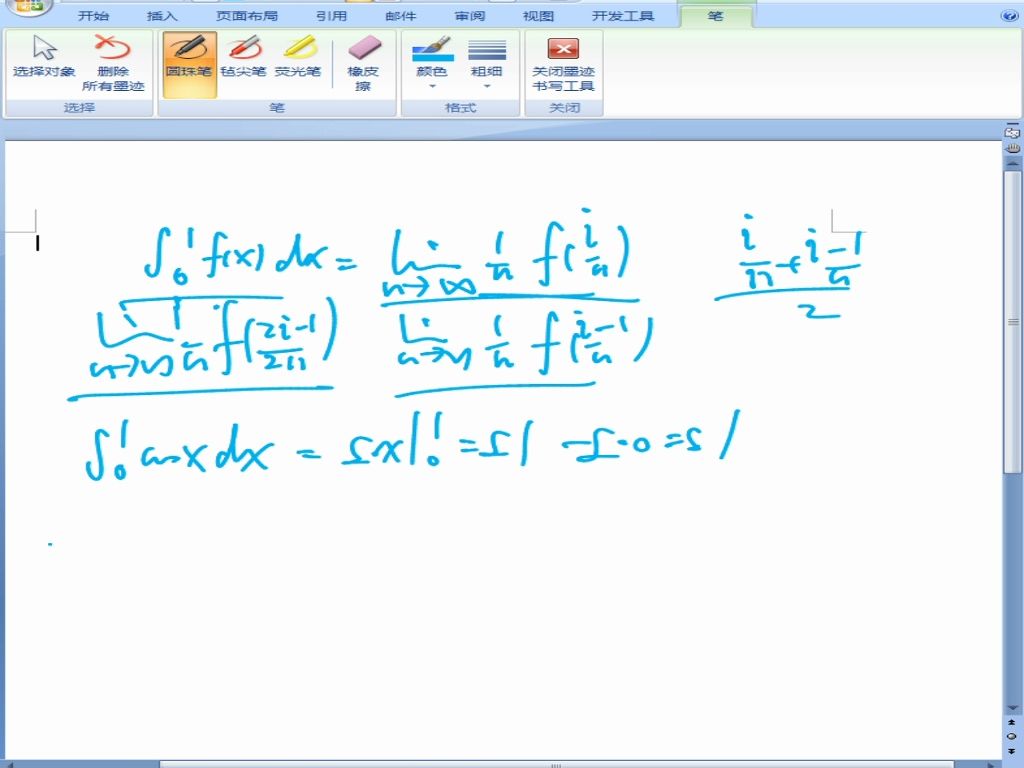 开始 插入 页面布局 引用 邮件 审阅 视图 开发工具 笔
选择对象 删除所有墨迹 圆珠笔 毡尖笔 荧光笔 橡皮擦 颜色 粗细 关闭墨迹书写工具
选择 笔 格式 关闭
∫₀¹ f(x) dx = lim n→∞ 1/n f(i/n) (i/n + i-1/n)/2
lim n→∞ 1/n f(2i-1/2n) lim n→∞ 1/n f(i-1/n)
∫₀¹ cosx dx = sx|₀¹ = s1 - s·0 = s1